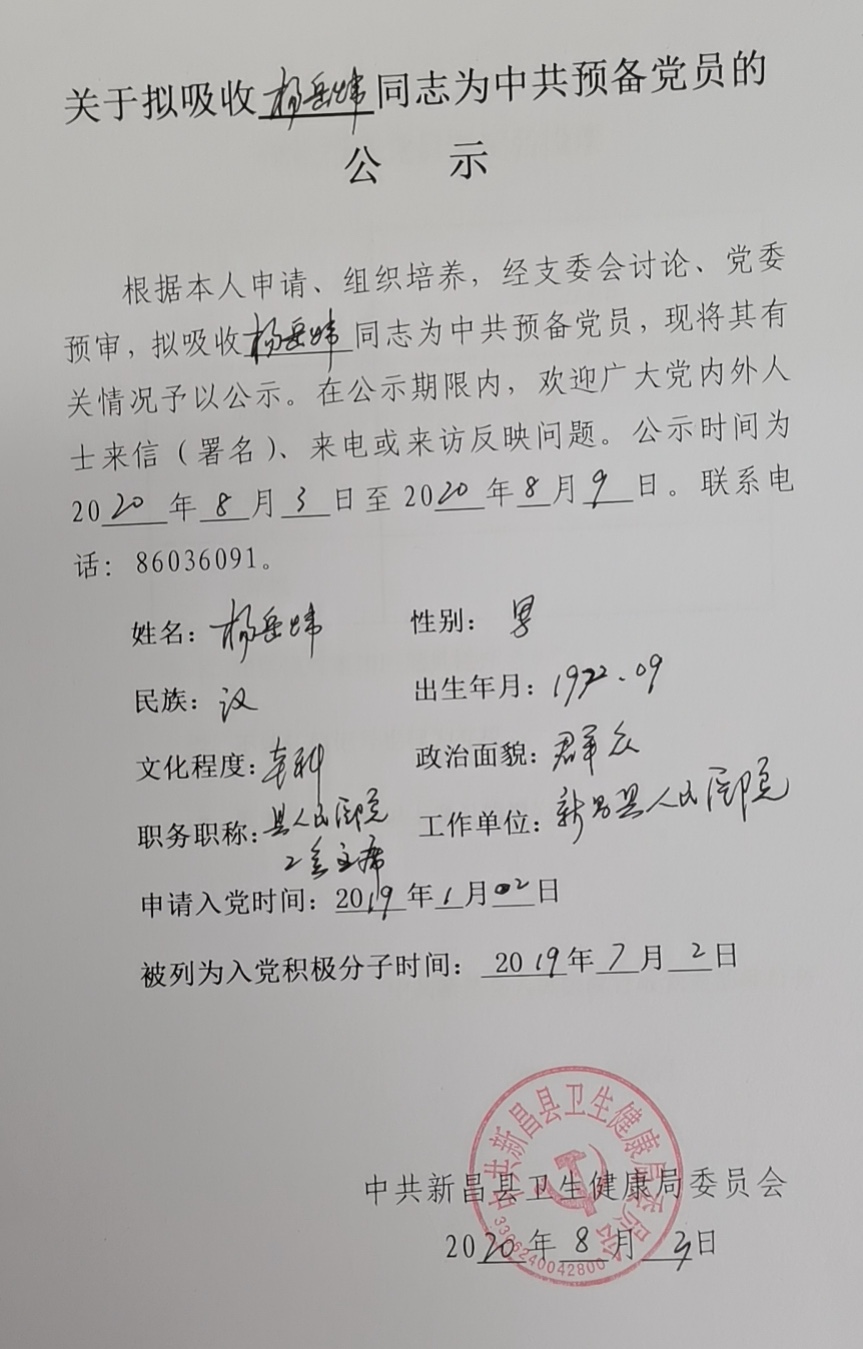 关于拟吸收杨岳炜同志为中共预备党员的
公 示
根据本人申请、组织培养，经支委会讨论、党委
预审，拟吸收杨岳炜同志为中共预备党员，现将其有
关情况予以公示。在公示期限内，欢迎广大党内外人
士来信（署名）、来电或来访反映问题。公示时间为
2020年8月3日至2020年8月9日。联系电
话：86036091。
姓名：杨岳炜 性别：男
民族：汉 出生年月：1972.09
文化程度：本科 政治面貌：群众
职务职称：县人民医院 工作单位：新昌县人民医院
工会主席
申请入党时间：2019年1月02日
被列为入党积极分子时间：2019年7月2日
中共新昌县卫生健康局委员会
中共新昌县卫生健康局委员会
2020年8月3日
3306240042800